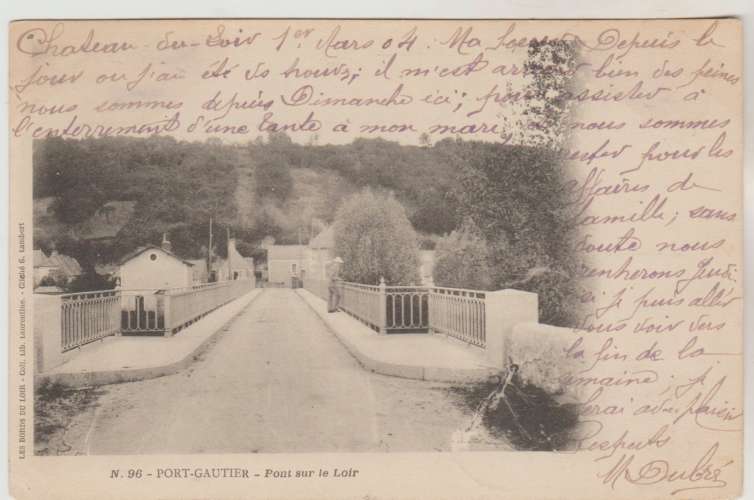 Chateau-du-Loir 1er Mars 04. Ma Depuis le
jour ou j'ai été vs ; il m'est arrivé bien des peines
nous sommes depuis Dimanche ici; pour assister à
l'enterrement d'une tante à mon mari, et nous sommes
pour les
affaires de
famille; sans
doute nous
Jeudi
si je puis aller
vous voir vers
la fin de la
semaine; je
serai avec plaisir
Respects
M Dubré
LES BORDS DU LOIR - Coll. Lib. Laurentine. - Cliché G. Lambert
N. 96 - PORT-GAUTIER - Pont sur le Loir